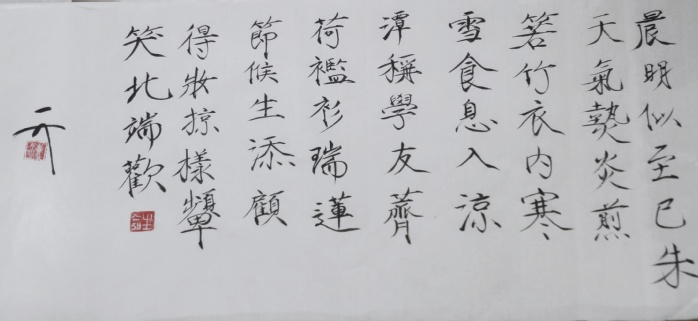 晨明似至已朱
天氣熱炎煎
箬竹衣内寒
雪食息入涼
潭稱學友薺
荷襤衫瑞蓮
節候生添顧
得妝掠樣顰
笑北端歡